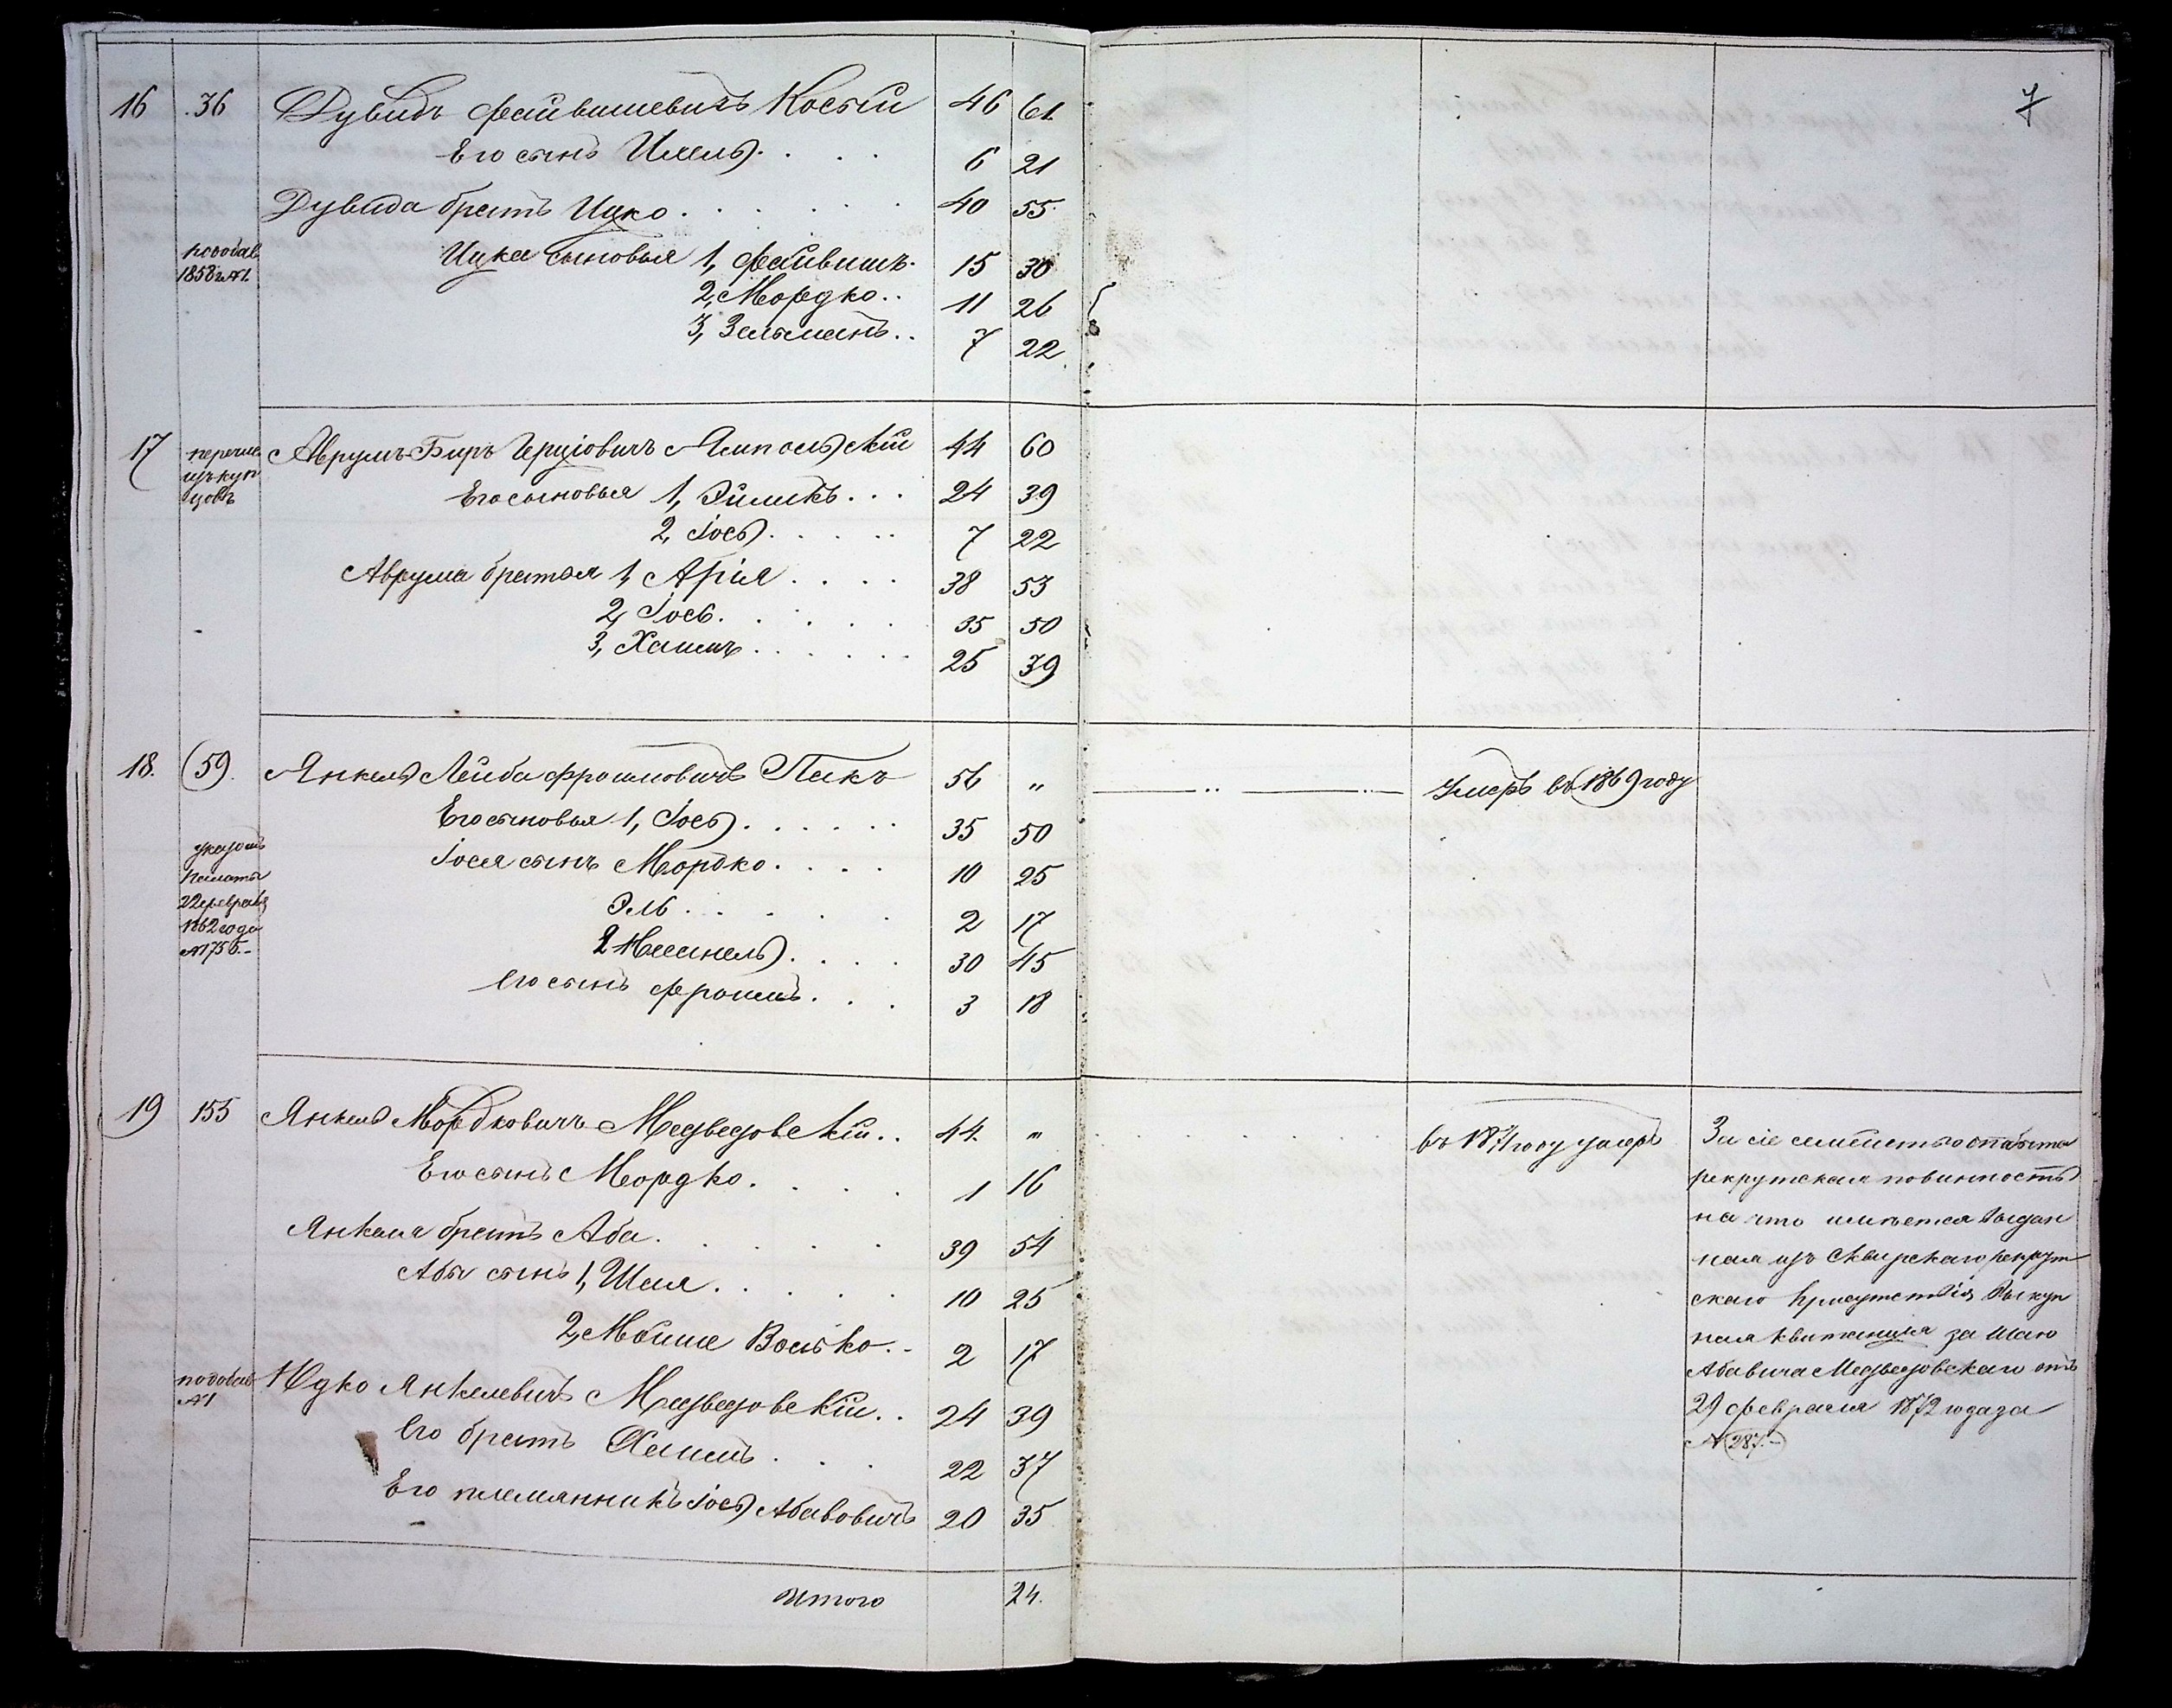 7
16 36 Дувидъ Файвишевичъ Косый 46 61
Его сынъИхель 6 21
Дувида братъ Ицко 40 55
Ицка сыновья 1, Файвишъ 15 30
1858 г. №1.
2, Мордко 11 26
3, Зельманъ 7 22
17 перечис. Аврумъ-Беръ Герціовичъ Ямпольскій 44 60
изъ куп
цовъ Его сыновья 1, Эйликъ 24 39
2, Іось 7 22
Аврума братья 1, Арія 38 53
2, Іось 35 50
3, Хаимъ 25 39
18. 59. Янкель Лейба Фроимовичъ Пикъ 56 „ Умеръ въ 1869 году
Его сыновья 1, Іось 35 50
указомъ Іося сынъ Мордко 10 25
Палаты
22 февраля Эль 2 17
1862 года
№1756.- 2 30 45
Его сынъ Фроимъ 3 18
19 155 Янкель Мордковичъ Медведовскій 44. „ въ 1871 году умеръ
Его сынъ Мордко 1 16
Янкеля братъ Аба 39 54
Абы сынъ 1, Шая 10 25
2, Мошко Волько 2 17
№1 Юдко Янкелевичъ Медведовскій 24 39
Его братъ Хаимъ 22 37
Его племянникъ Іось Абавовичъ 20 35
За сіе семейство отбыта
рекрутская повинность
на что имѣется выдан
ная изъ Сквирскаго рекрут
скаго присутствія выкуп
ная квитанція за Шаю
Абавича Медведовскаго отъ
29 февраля 1872 года за
№ 287.-
Итого 24.